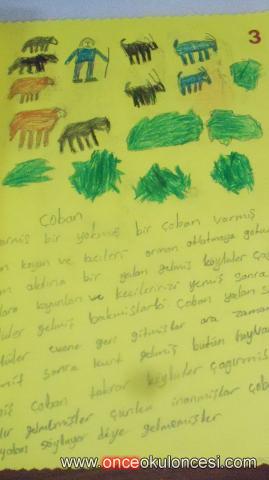 3
Çoban
varmış bir yokmuş bir çoban varmış
koyun ve keçileri orman otlatmaya
aklına bir yalan gelmiş köylüler
koyunları ve kecilerinizi yemiş sonra
gelmiş bakmışlarki çoban yalan
evine geri gitmişler ara zaman
sonra kurt gelmiş bütün
çoban tekrar köylüler çağırmış
gelmemişler çünkü inanmışlar
yalan söylüyor diye gelmemişler
www.onceokuloncesi.com